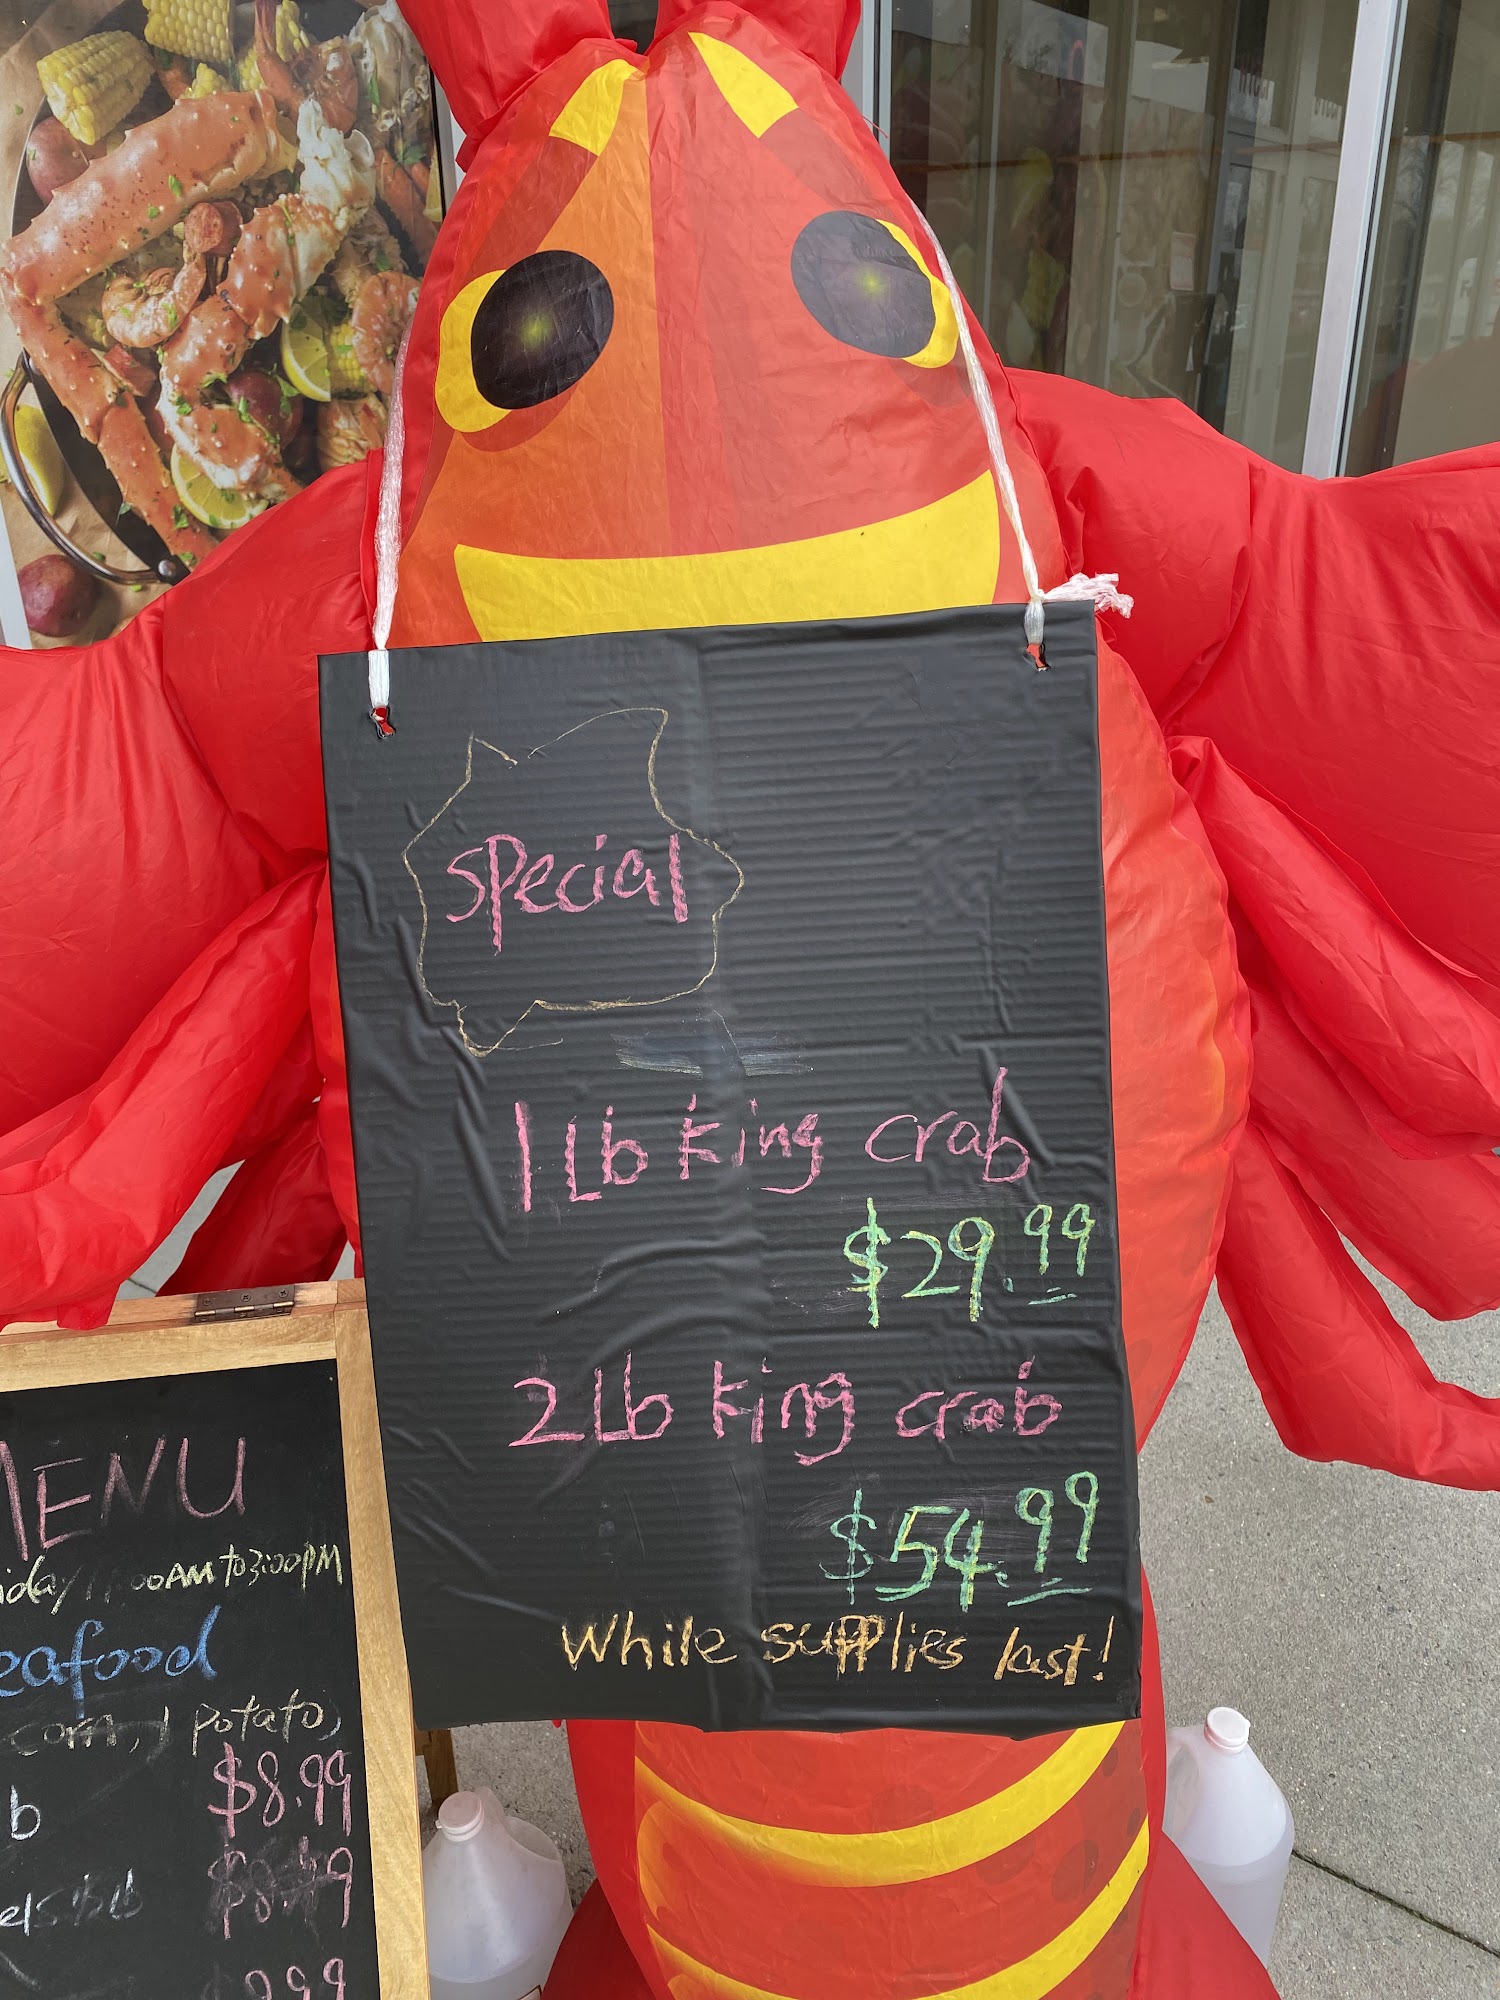 special
1 Lb king crab
$29.99
2 Lb king crab
$54.99
While supplies last!
MENU
11:00AM to 3:00PM
eafood
corn, 1 potato,
$8.99
b